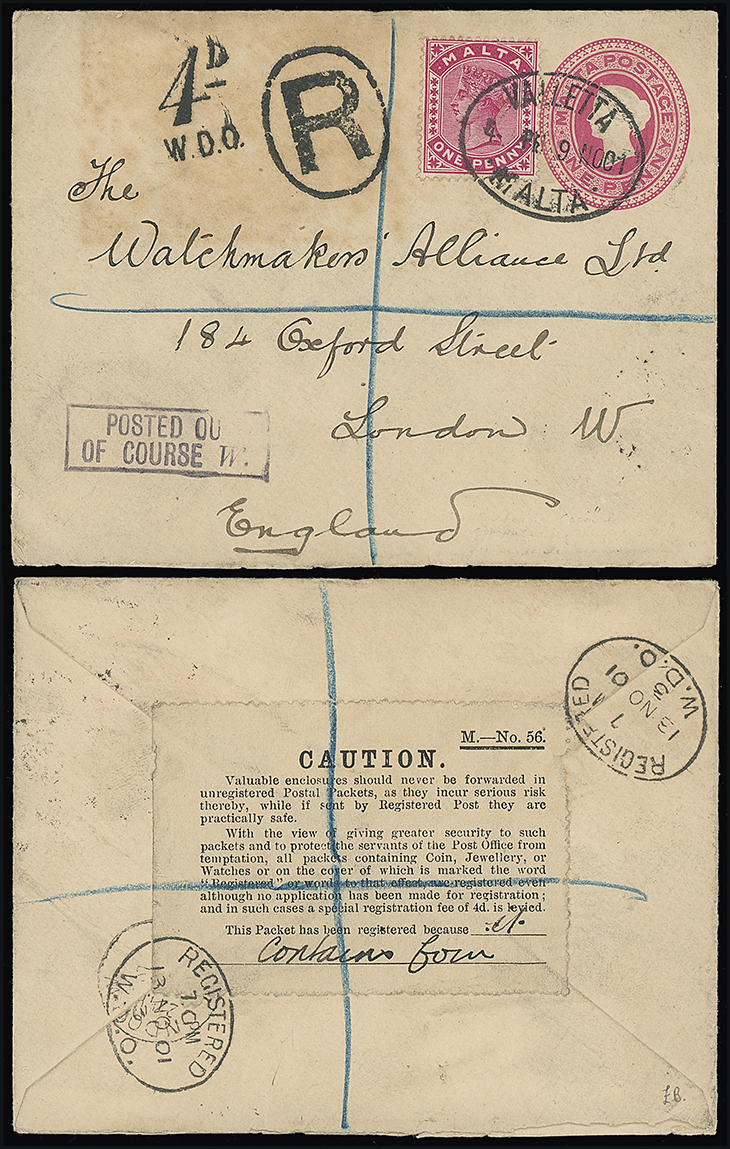 4D
W.D.O.
R
MALTA
ONE PENNY
MALTA POSTAGE
ONE PENNY
VALLETTA
NO 9 01
MALTA
The
Watchmakers' Alliance Ltd
184 Oxford Street
London W
England
POSTED OU
OF COURSE W.
REGISTERED
13 NO 01
W.D.O.
M.—No. 56.
CAUTION.
Valuable enclosures should never be forwarded in
unregistered Postal Packets, as they incur serious risk
thereby, while if sent by Registered Post they are
practically safe.
With the view of giving greater security to such
packets and to protect the servants of the Post Office from
temptation, all packets containing Coin, Jewellery, or
Watches or on the cover of which is marked the word
"Registered" or words to that effect, are registered even
although no application has been made for registration;
and in such cases a special registration fee of 4d. is levied.
This Packet has been registered because it
Contains
REGISTERED
13 NO 01
W.D.O.